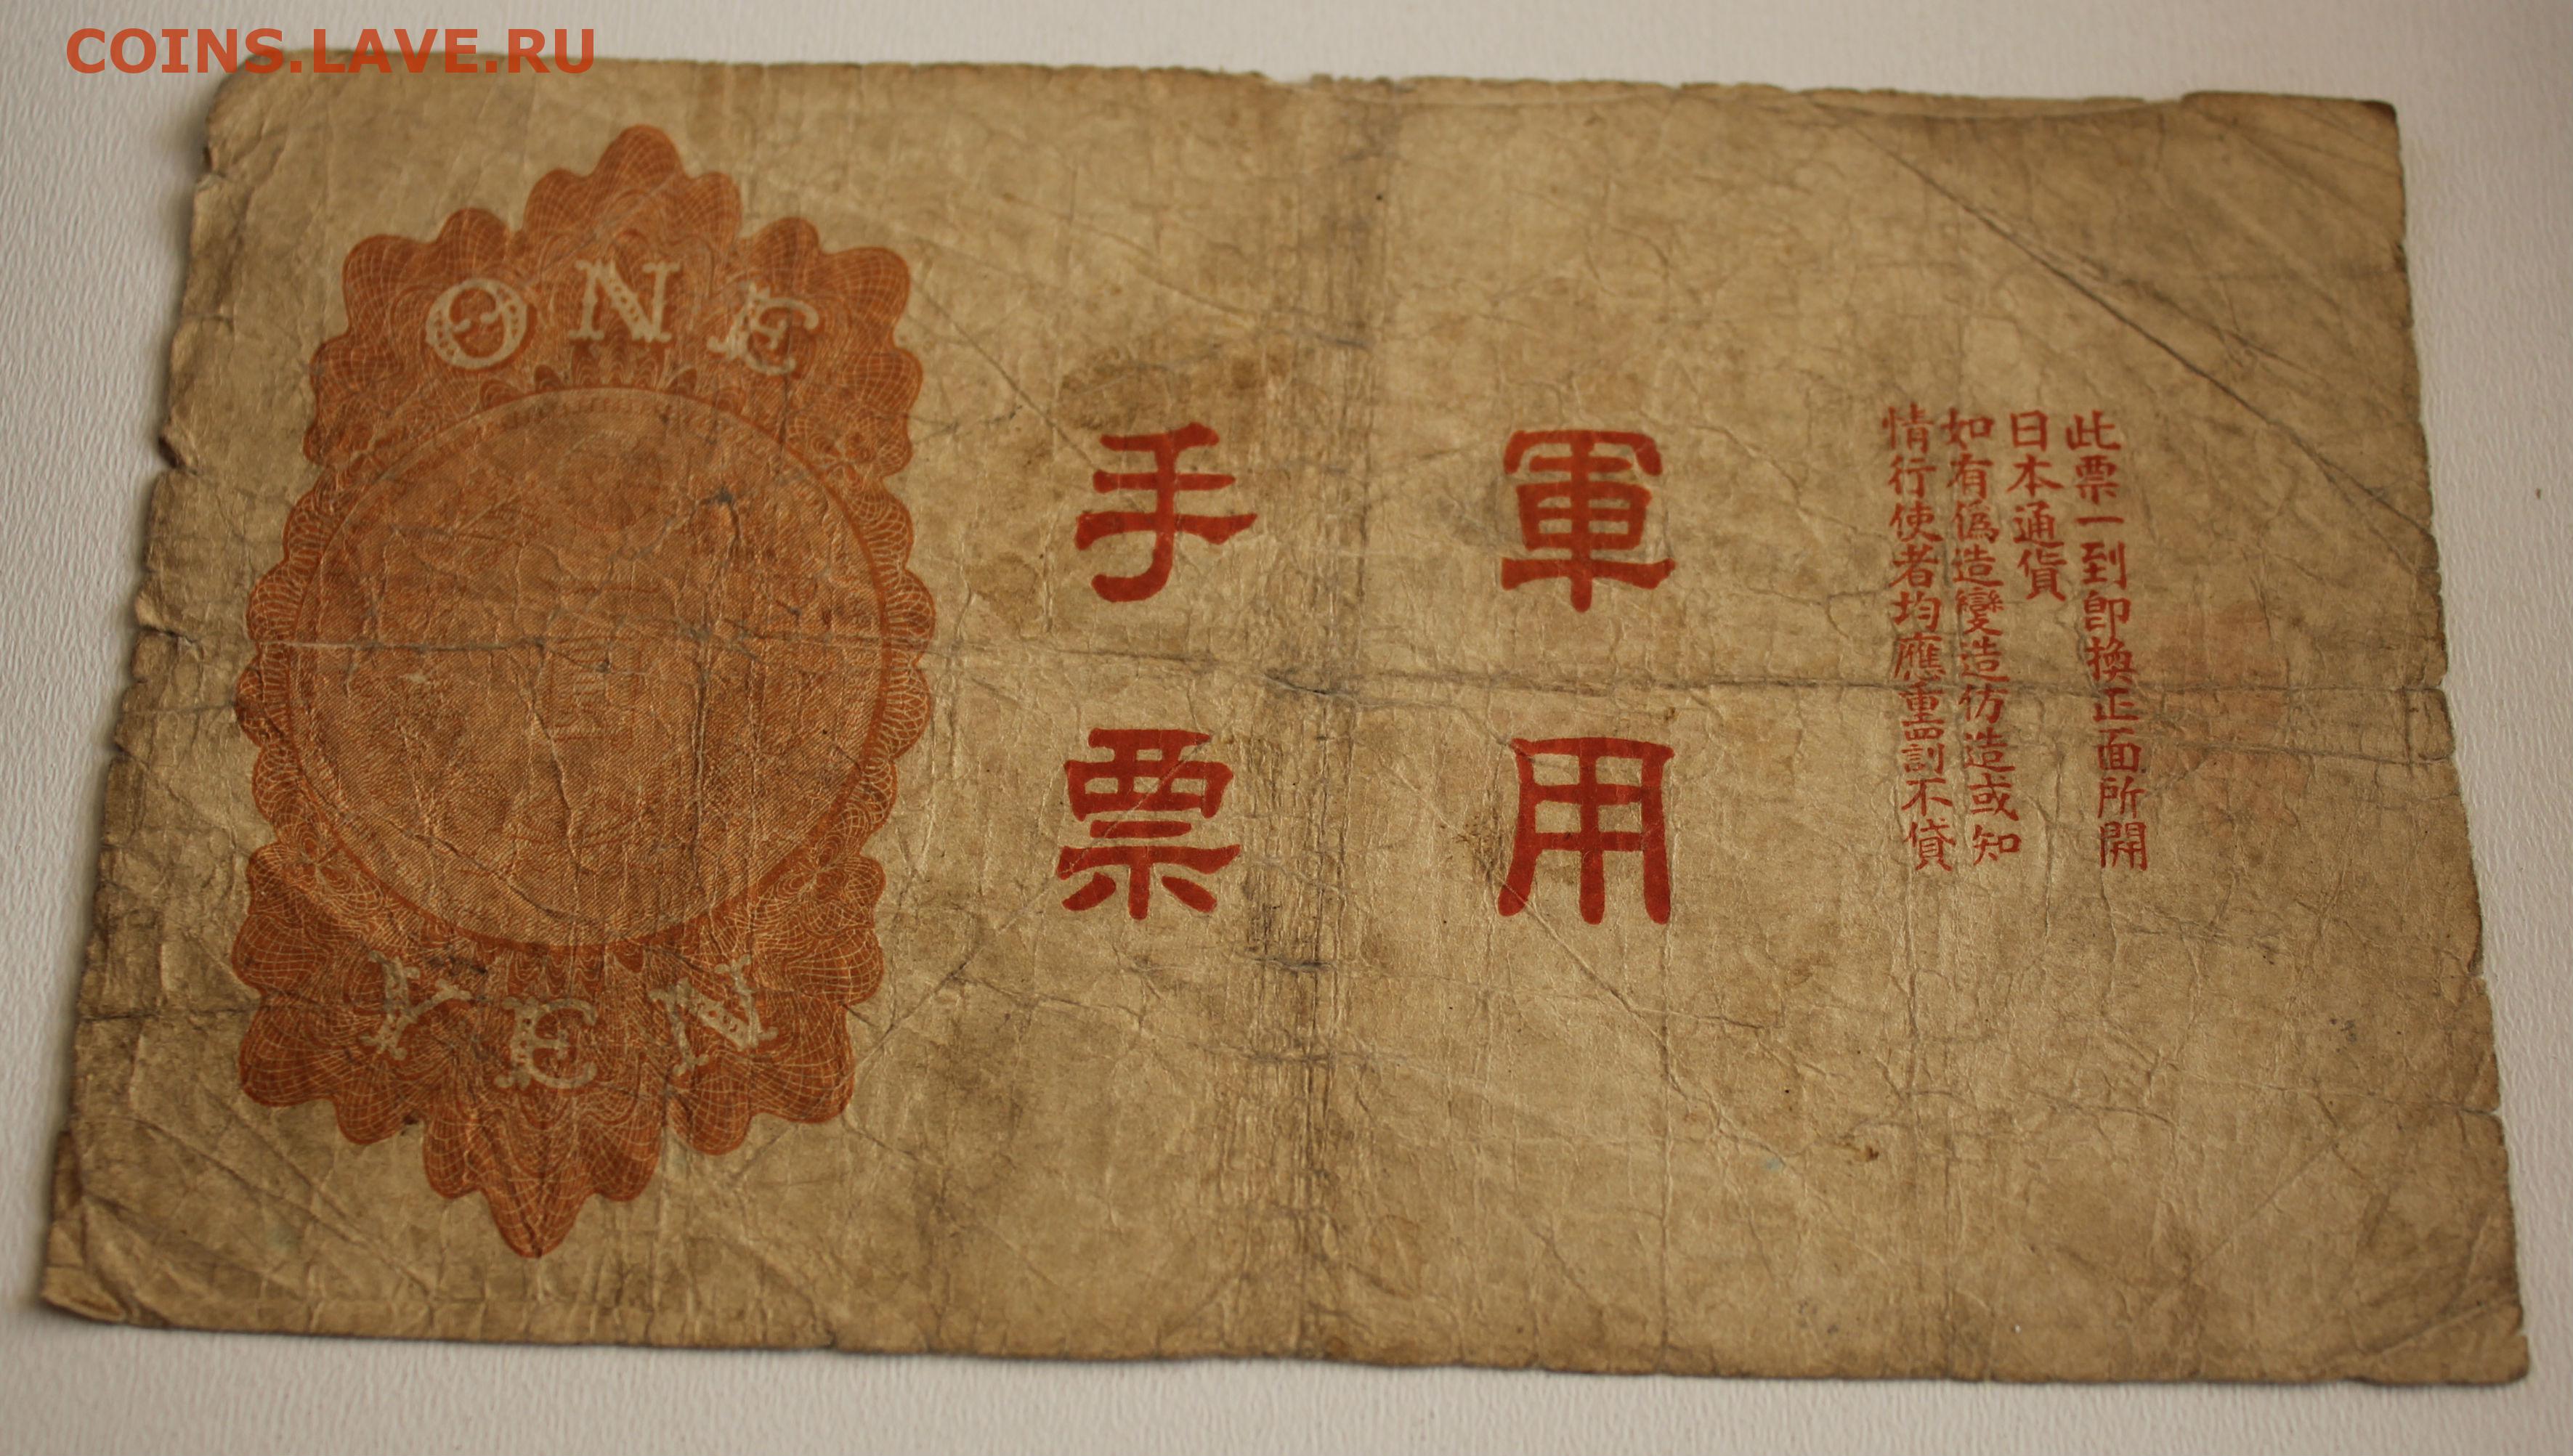 COINS.LAVE.RU
ONE
YEN
軍用
手票
此票一到卽換正面所開
日本通貨
如有僞造變造仿造或知
情行使者均應重罰不貸